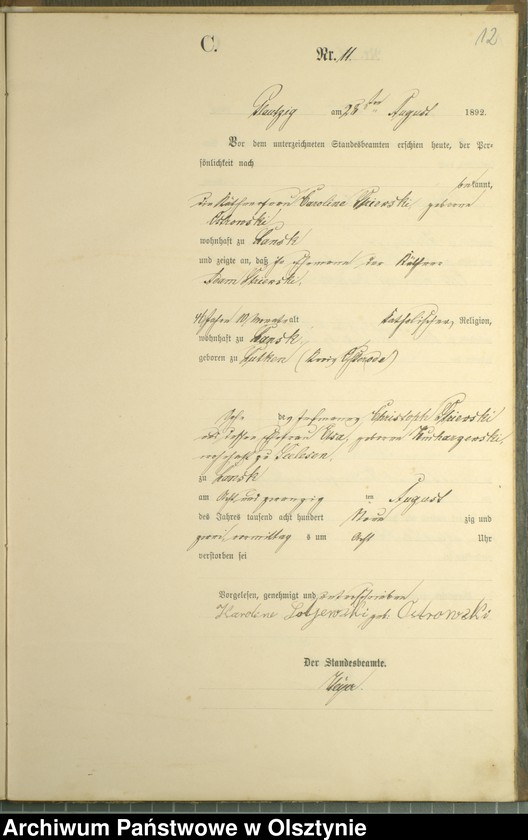 12
C.
Nr. 11.
am 28ten August 1892.
Vor dem unterzeichneten Standesbeamten erschien heute, der Per-
sönlichkeit nach
bekannt,
die Käthnerfrau Caroline geborene
Ostrowski
wohnhaft zu Lansk
und zeigte an, daß ihr Ehemann der Käthner
Adam
46 Jahre 10 Monate alt Katholischer Religion,
wohnhaft zu Lansk
geboren zu Lutken (Kreis Osterode)
Sohn des Christoph
und dessen Ehefrau Eva, geborene
wohnhaft zu
zu Lansk
am Acht und zwanzig ten August
des Jahres tausend acht hundert Neun zig und
zwei, vormittags um Acht Uhr
verstorben sei
Vorgelesen, genehmigt und unterschrieben
geb Ostrowski
Der Standesbeamte.
Archiwum Państwowe w Olsztynie